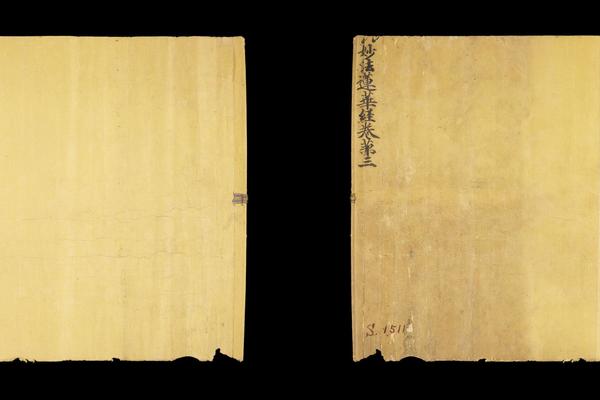 妙法蓮華経巻第三
S. 1511